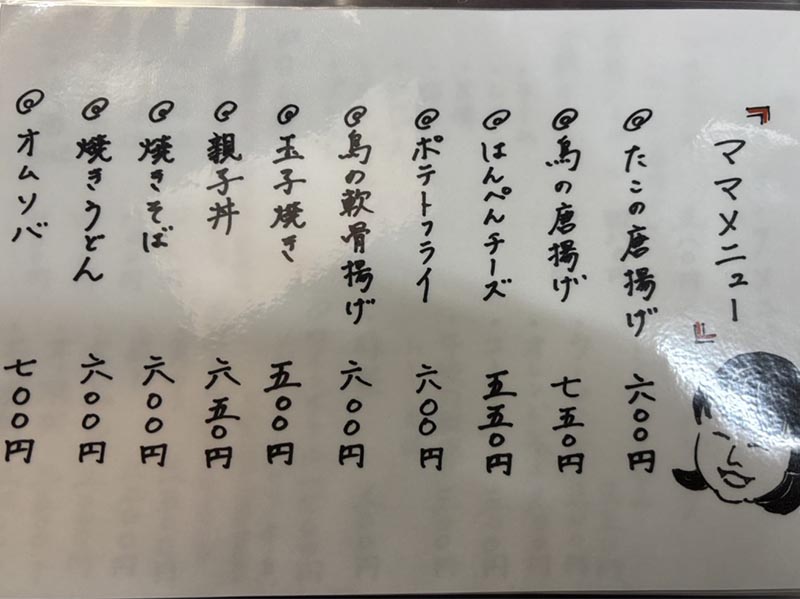 『ママメニュー』
@たこの唐揚げ 六〇〇円
@鳥の唐揚げ 七五〇円
@はんぺんチーズ 五五〇円
@ポテトフライ 六〇〇円
@鳥の軟骨揚げ 六〇〇円
@玉子焼き 五〇〇円
@親子丼 六五〇円
@焼きそば 六〇〇円
@焼きうどん 六〇〇円
@オムソバ 七〇〇円